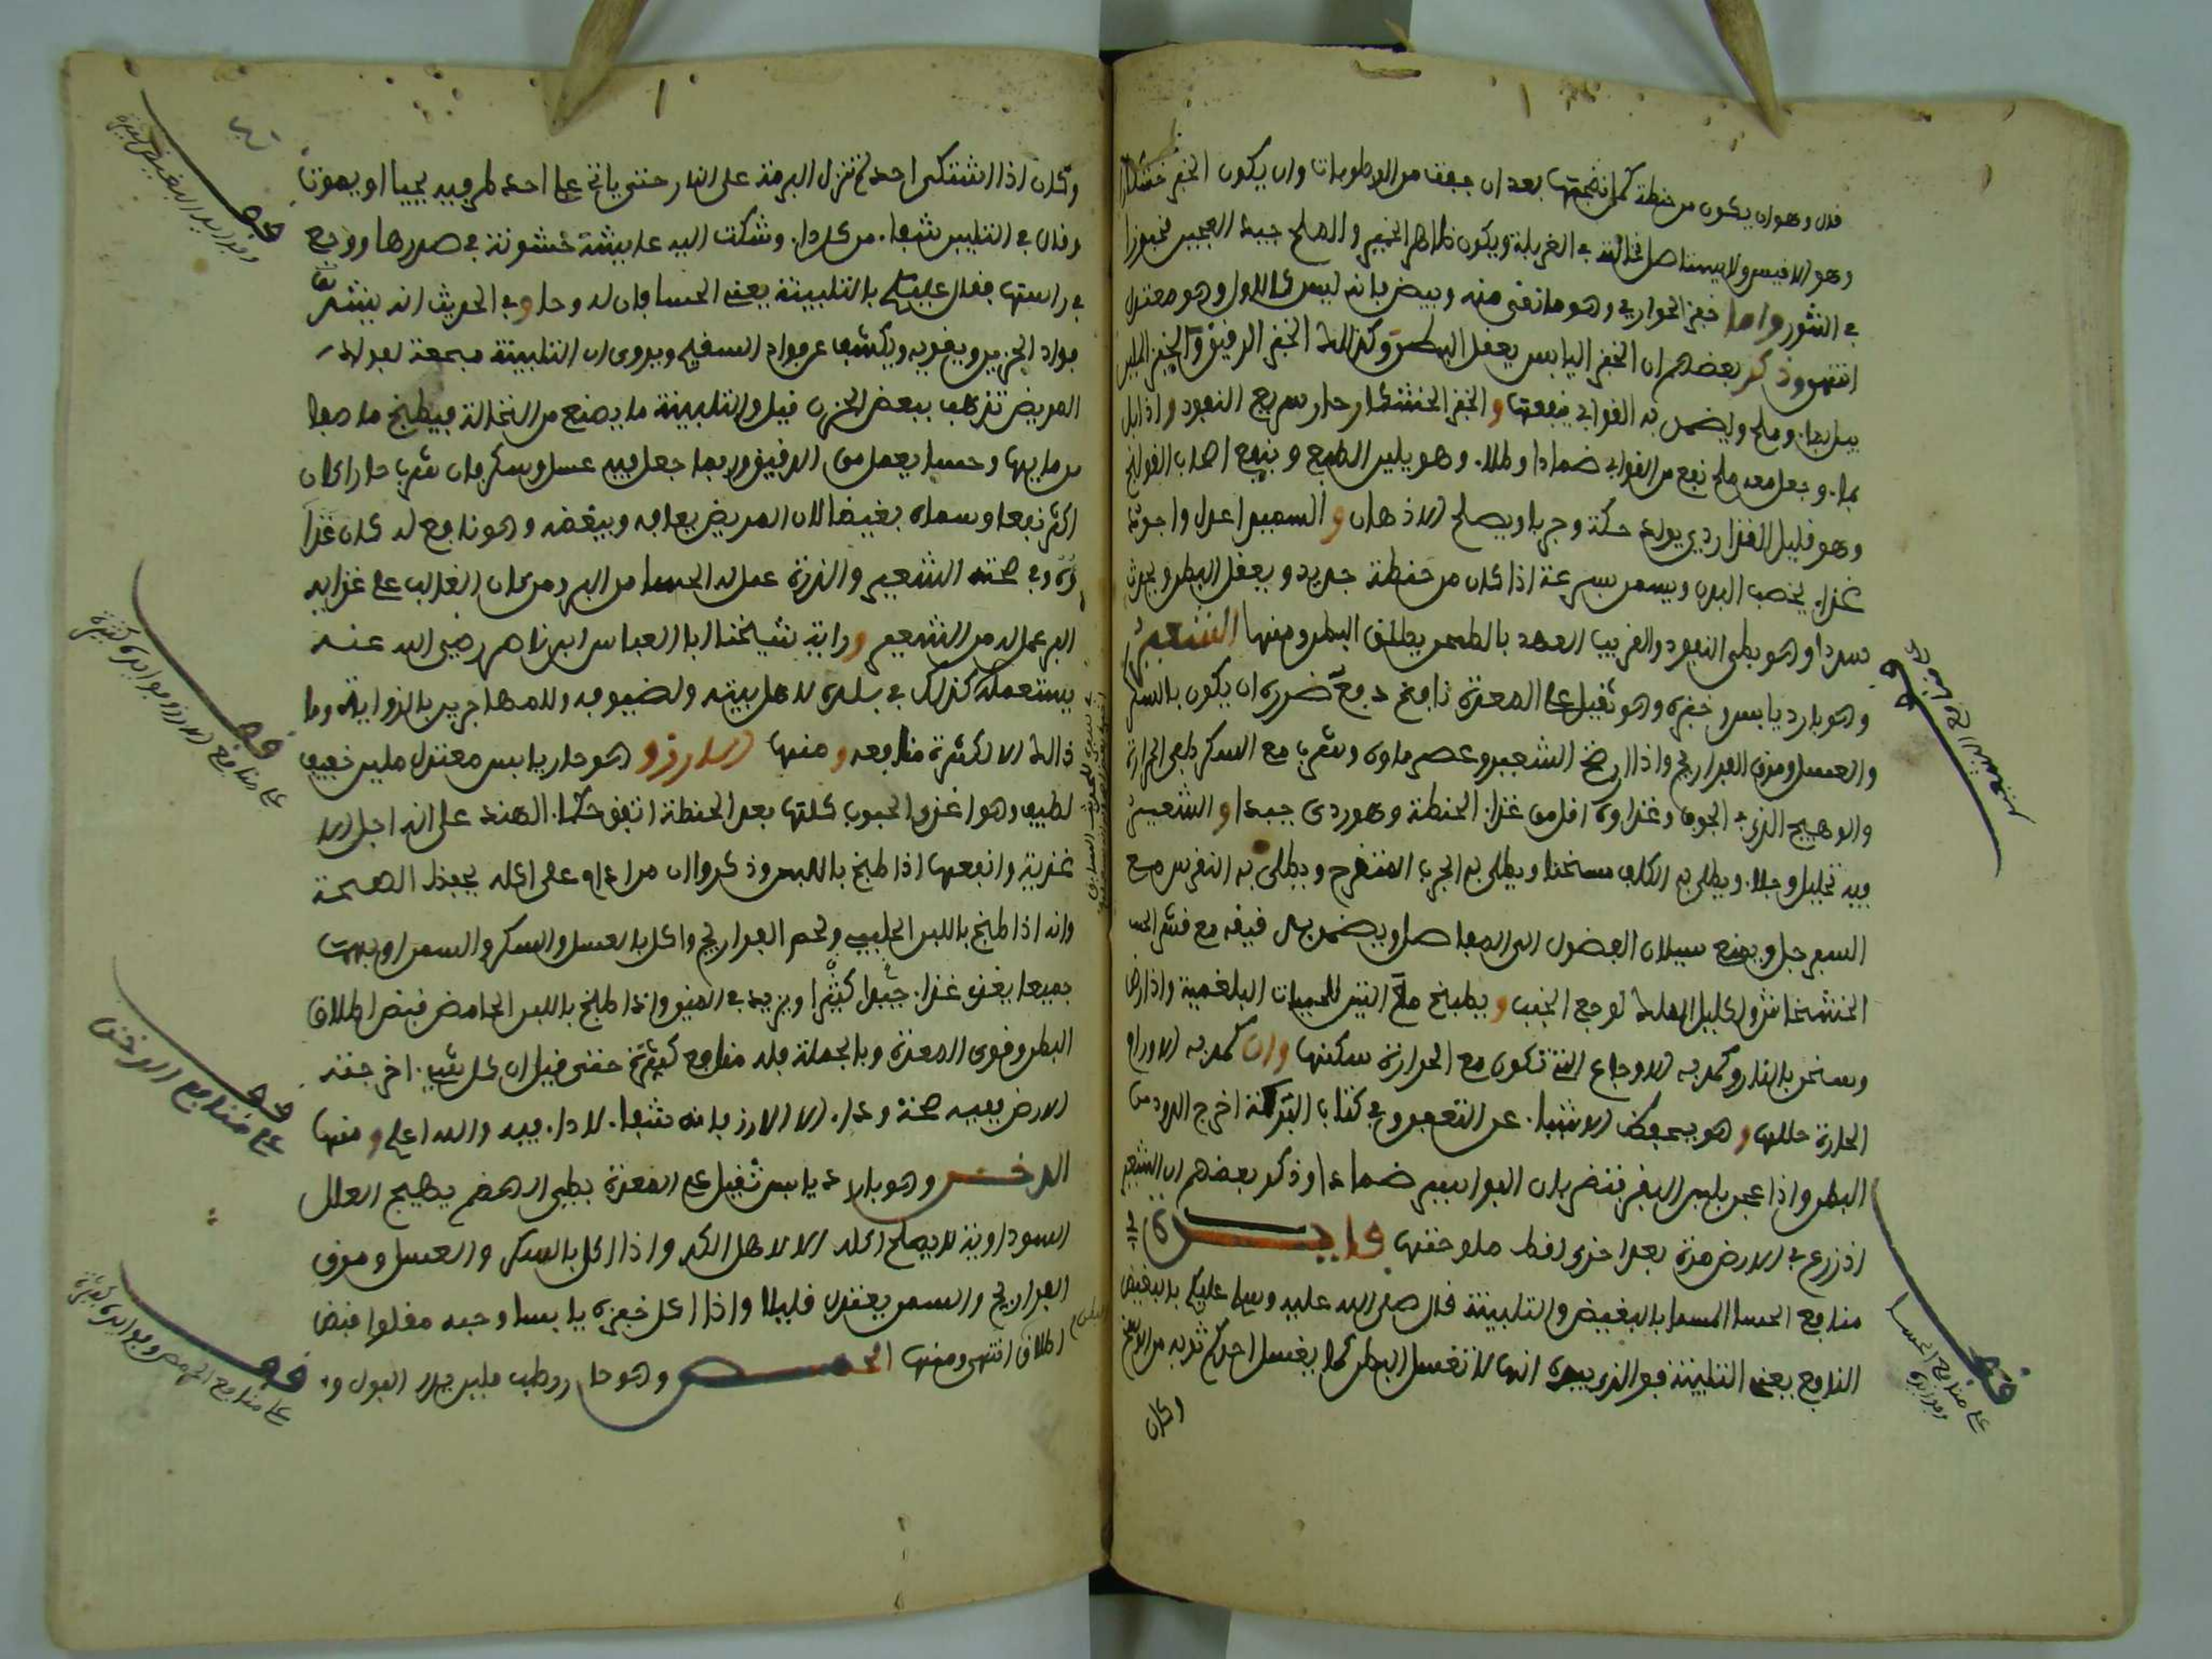 قال وهو ان يكون من حنطة كمل نضجها بعد ان جففت من الرطوبات وان يكون الخبز خشكارا
وهو الافيس ولا يستاصل نخالته في الغربلة ويكون ظاهر الخمير والملح جيد العجين مخبوزا
في التنور واما خبز الحوارى وهو ما نقي منه وبيض فانه ليس كالاول وهو معتدل
انتهى وذكر بعضهم ان الخبز اليابس يعقل البطن وكذلك الخبز الرقيق والخبز الملين
يبل بماء وملح ويضمد به القوابي فينفعها والخبز الخشكار حار سريع النفوذ واذا بل
بماء وجعل معه ملح نفع من القوابي ضمادا وطلاء وهو يلين الطبع وينفع اصحاب القولنج
وهو قليل الغذا ردي يولد حكة وجربا ويصلحه الادهان والسميد اعدل واجود
غذاء يخصب البدن ويسمن بسرعة اذا كان من حنطة جديد ويعقل البطن ويحدث
سددا وهو بطي النفوذ والقريب العهد بالطحن يطلق البطن ومنها الشعير
وهو بارد يابس وخبزه وهو ثقيل على المعدة نافخ دفع ضرره ان يكون بالسكر
والعسل ومرق الفراريج واذا رضخ الشعير وعصر ماوه وشرب مع السكر طفى الحرارة
والوهيج الذي في الجوف وغذاوه اقل من غذاء الحنطة وهو ردي جيدا والشعير
فيه تحليل وجلاء ويطلى به الكلف مسخنا ويطلى به الجرب المتقرح ويطلى به النقرس مع
السفرجل ويمنع سيلان الفضول الى المفاصل ويضمد بدقيقه مع قشر
الخشخاش واكليل الملك لوجع الجنب ويطبخ مع التين للحميات البلغمية واذا رض
وسخن بالنار وكمد به الاوجاع التي تكون مع الحرارة سكنها وان كمد به الاورام
الحارة حللها وهو يحفظ الاشياء عن التعفن وفي كتاب البركة اخرج الدود من
البطن واذا عجن بلبن البقر نفع بلان البواسير ضمادا وذكر بعضهم ان الشعير
اذ زرع في الارض مرة بعد اخرى افط ملوحتها فايدة في
منافع الحسا المسما بالبغيض والتلبينة قال صلى الله عليه وسلم عليكم بالبغيض
النافع يعني التلبينة فو الذي بيده انها لا تغسل البطن كما يغسل احدكم ثوبه من الوسخ
وكان
قف على منافع الحسا وفوايده
وكان اذا اشتكى احد لم تزل البرمة على النار حتى ياتي على احد طرفيه يحيا او يموت
وقال في التلبين شفاء من كل داء وشكت اليه عايشة خشونة في صدرها ووجع
في راسها فقال عليك بالتلبينة يعني الحسا فان له وحا وفي الحديث انه يشد
فواد الحزين ويقويه ويكشف عن فواد السقيم ويروى ان التلبينة مجمعة لفواد
المريض تذهب ببعض الحزن قيل والتلبينة ما يصنع من النخالة فيطبخ ما صفا
من مايها وحسا يعمل من الدقيق وربما جعل فيه عسل وسكر فان شرب حارا كان
اكثر نفعا وسماه بغيضا لان المريض يعافه ويبغضه وهو نافع له كان غذا
وه في صحته الشعير والذرة عمل له الحسا من البر ومن كان الغالب على غذايه
البر عمل له من الشعير ورايت شيخنا ابا العباس ابن ناصر رضي الله عنه
يستعمله كذلك في بلده لاهل بيته ولضيوفه وللمهاجرين بالزواية وما
ذالك الا لكثرة منافعه ومنها الارز وهو حار يابس معتدل ملين خفيف
لطيف وهو اغذى الحبوب كلها بعد الحنطة اتفق حكماء الهند على انه اجل الا
غذية وانفعها اذا طبخ باللبن وذكروا ان من اداوم على اكله يحفظ الصحة
وانه اذا طبخ باللبن الحليب ولحم الفراريج واكل بالعسل والسكر والسمن او بهم
جميعا يغذي غذاء جيدا كثيرا ويزيد في المني واذا طبخ باللبن الحامض قبض اطلاق
البطن وقوى المعدة وبالجملة فله منافع كثيرة حتى قيل ان كل شيء اخرجته
الارض ففيه صحة وداء الا الارز فانه شفاء لا داء فيه والله اعلم ومنها
الدخن وهو بارد يابس ثقيل على المعدة بطي الهضم يهيج العلل
السوداوية لا يصلح اكله الا لاهل الكد واذا اكل بالسكر والعسل ومرق
الفراريج والسمن يعتدل قليلا واذا اكل خبزه يابسا وحبه مقلوا قبض
اطلاق انتهى ومنها الحمص وهو حار رطب ملين يدر البول و
قف وفوايد البغيض
قف على منافع الارز وفوايده كثيرة
قف على منافع الدخن
قف على منافع الحمص وفوايده كثيرة